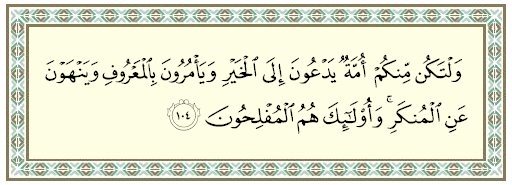 وَلۡتَكُن مِّنكُمۡ أُمَّةٞ يَدۡعُونَ إِلَى ٱلۡخَيۡرِ وَيَأۡمُرُونَ بِٱلۡمَعۡرُوفِ وَيَنۡهَوۡنَ
عَنِ ٱلۡمُنكَرِۚ وَأُوْلَٰٓئِكَ هُمُ ٱلۡمُفۡلِحُونَ ١٠٤